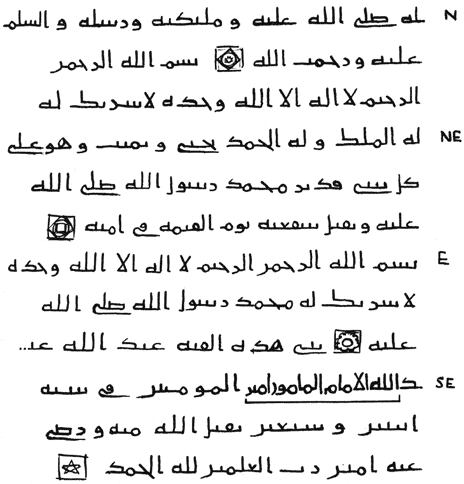 N له صلى الله عليه و ملئكته ورسله و السلم
عليه ورحمت الله بسم الله الرحمن
الرحيم لا اله الا الله وحده لا شريك له
NE له الملك و له الحمد يحيي و يميت و هو على
كل شي قدير محمد رسول الله صلى الله
عليه و يقبل شفعته يوم القيمه في امته
E بسم الله الرحمن الرحيم لا اله الا الله وحده
لا شريك له محمد رسول الله صلى الله
عليه بنى هذه القبه عبد الله عبـ...
SE ـد الله الامام المامون امير المومنين في سنه
اثنتين و سبعين تقبل الله منه و رضى
عنه امين رب العلمين لله الحمد